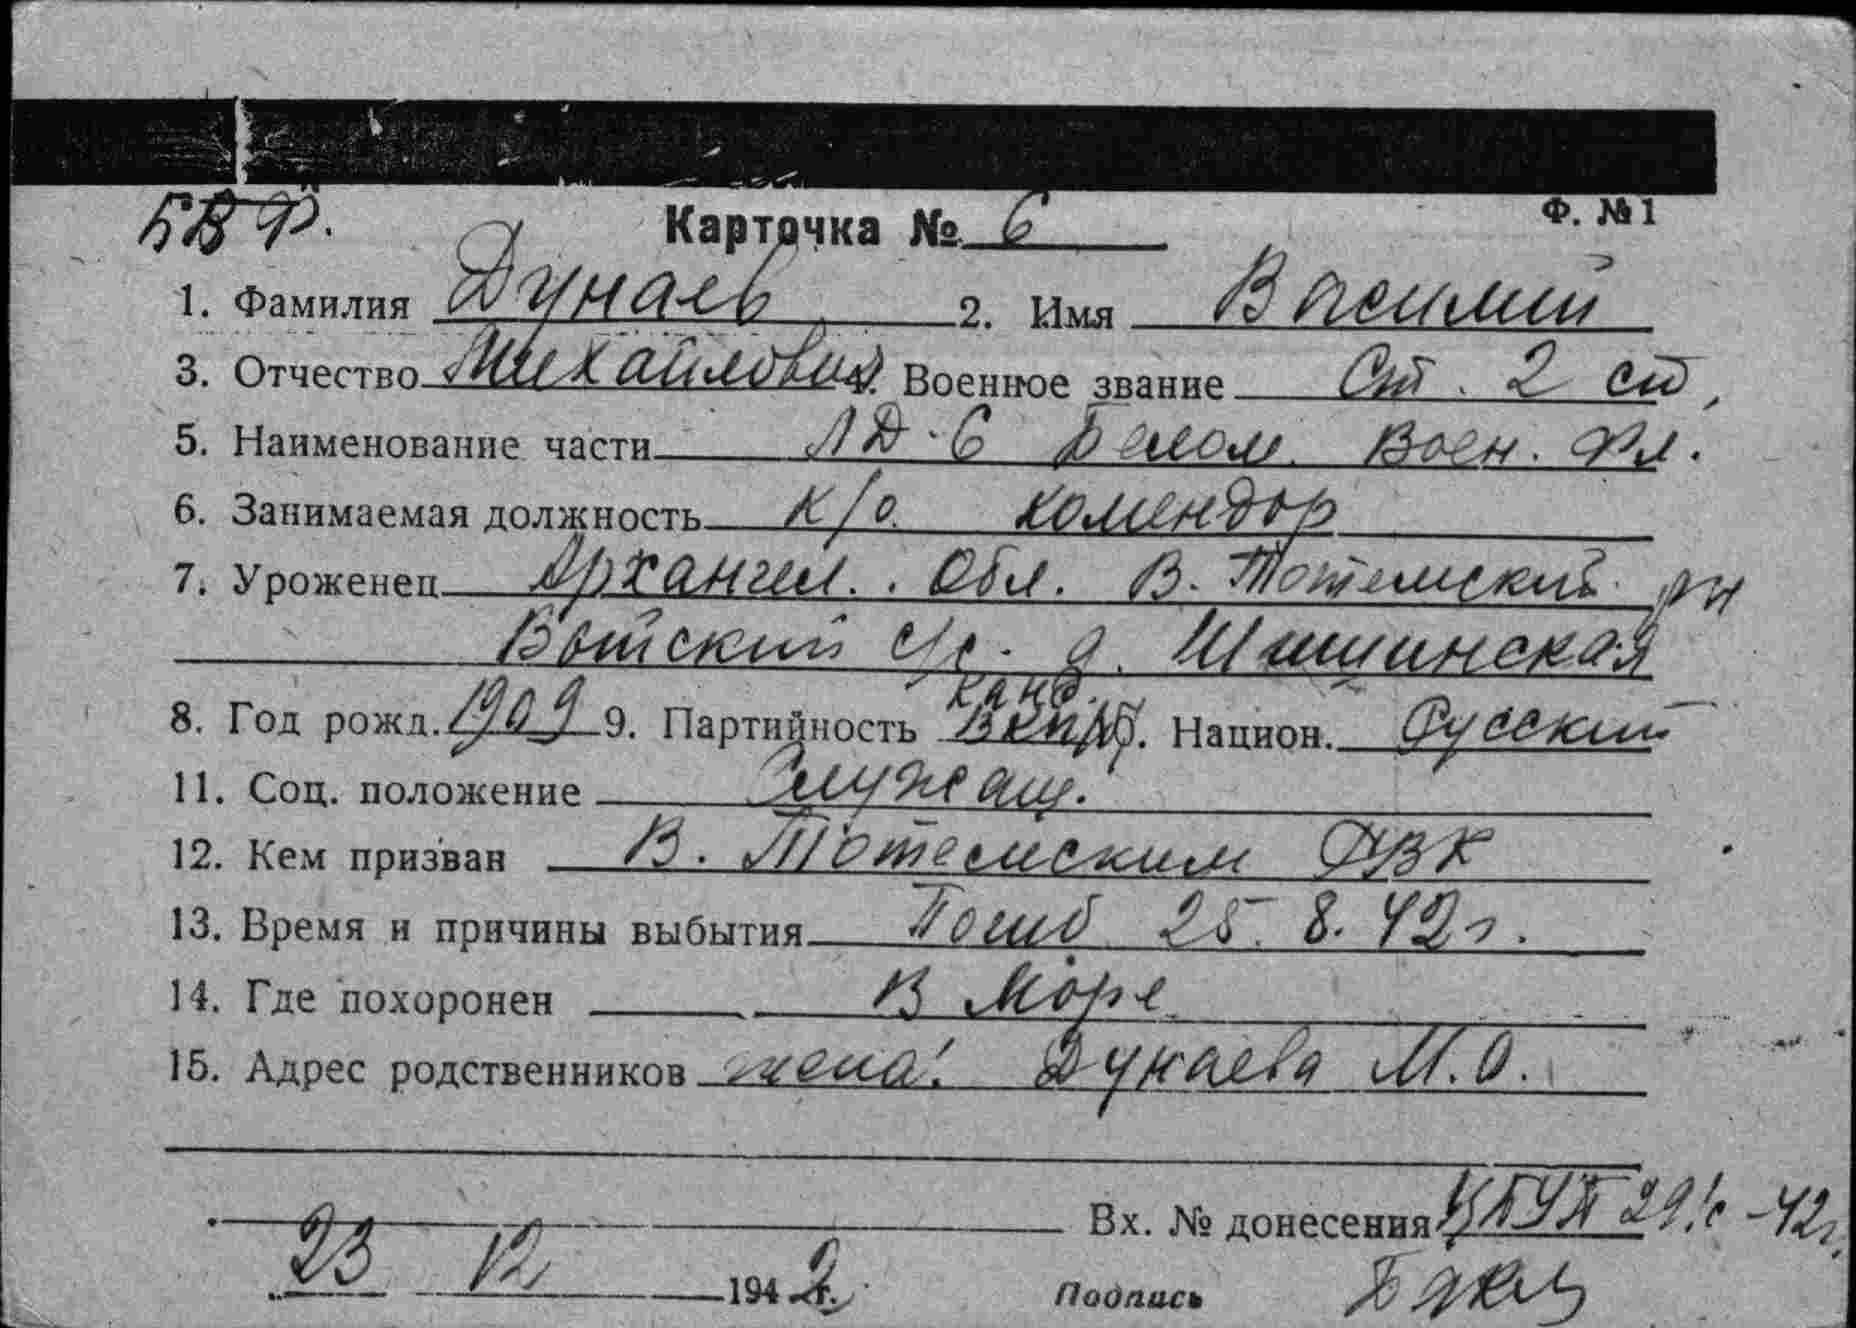 БВФ.
Карточка № 6
Ф. № 1
1. Фамилия Дунаев 2. Имя Василий
3. Отчество Михайлович 4. Военное звание Ст. 2 ст,
5. Наименование части ЛД-6 Белом. Воен. Фл.
6. Занимаемая должность к/о. комендор
7. Уроженец Архангел. Обл. В. Тотемский рн
с/с. д. Шишинская
8. Год рожд. 1909 9. Партийность канд. ВКП/б/. Национ. Русский
11. Соц. положение Служащ.
12. Кем призван В. Тотемским РВК
13. Время и причины выбытия Погиб 25. 8. 42 г.
14. Где похоронен В Море
15. Адрес родственников жена: Дунаева М. О.
Вх. № донесения 29/с -42г.
23 12 1942 г.
Подпись